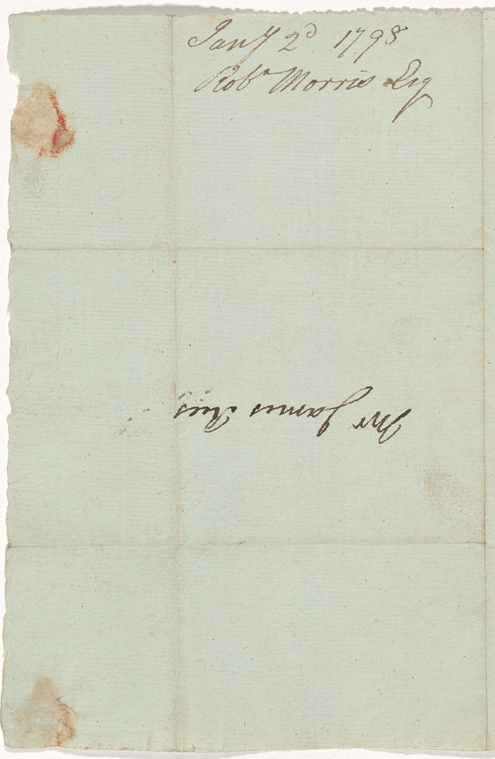 Jany 2d 1798
Robt Morris Esq
Mr James Rees